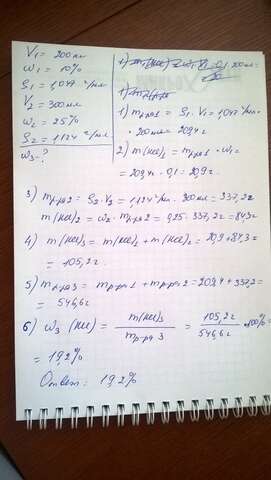 V1 = 200 мл
ω1 = 10%
ρ1 = 1,047 г/мл
V2 = 300 мл
ω2 = 25%
ρ2 = 1,124 г/мл
ω3 - ?
1) mр-ра1 = ρ1 · V1 = 1,047 г/мл ·
· 200 мл = 209,4 г
2) m(HCl)1 = mр-ра1 · ω1 =
= 209,4 · 0,1 = 20,9 г.
3) mр-ра2 = ρ2 · V2 = 1,124 г/мл · 300 мл = 337,2 г
m(HCl)2 = ω2 · mр-ра2 = 0,25 · 337,2 г = 84,3 г
4) m(HCl)3 = m(HCl)1 + m(HCl)2 = 20,9 + 84,3 =
= 105,2 г.
5) mр-ра3 = mр-ра1 + mр-ра2 = 209,4 + 337,2 =
= 546,6 г
6) ω3 (HCl) = m(HCl)3 / mр-ра3 = 105,2 г / 546,6 г · 100% =
= 19,2%
Ответ: 19,2%